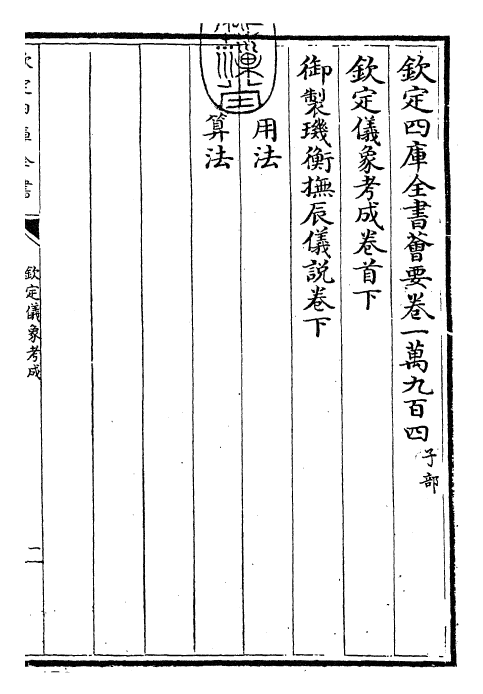 欽定四庫全書薈要卷一萬九百四 子部
欽定儀象考成卷首下
御製璣衡撫辰儀說卷下
用法
算法
欽定四庫全書
欽定儀象考成
二